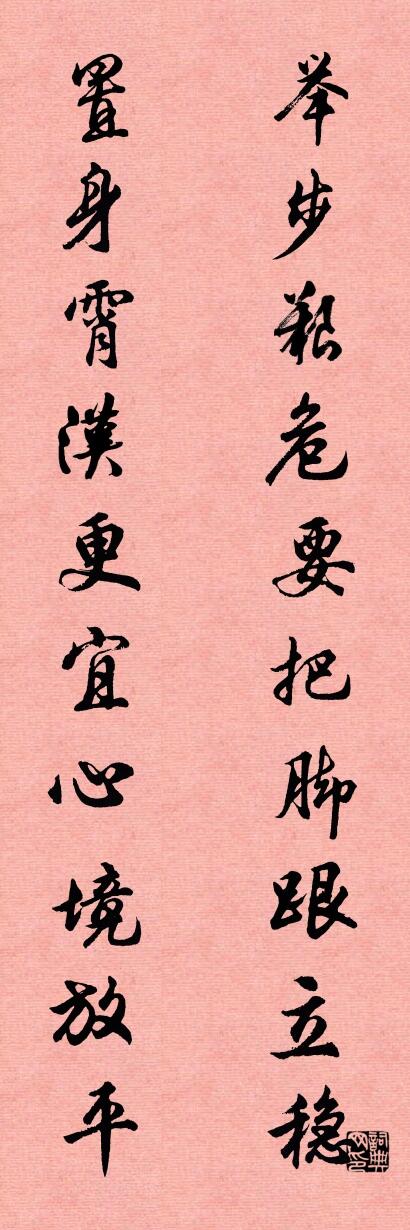 举步艰危要把脚跟立稳
置身霄漢更宜心境放平
詞典网印